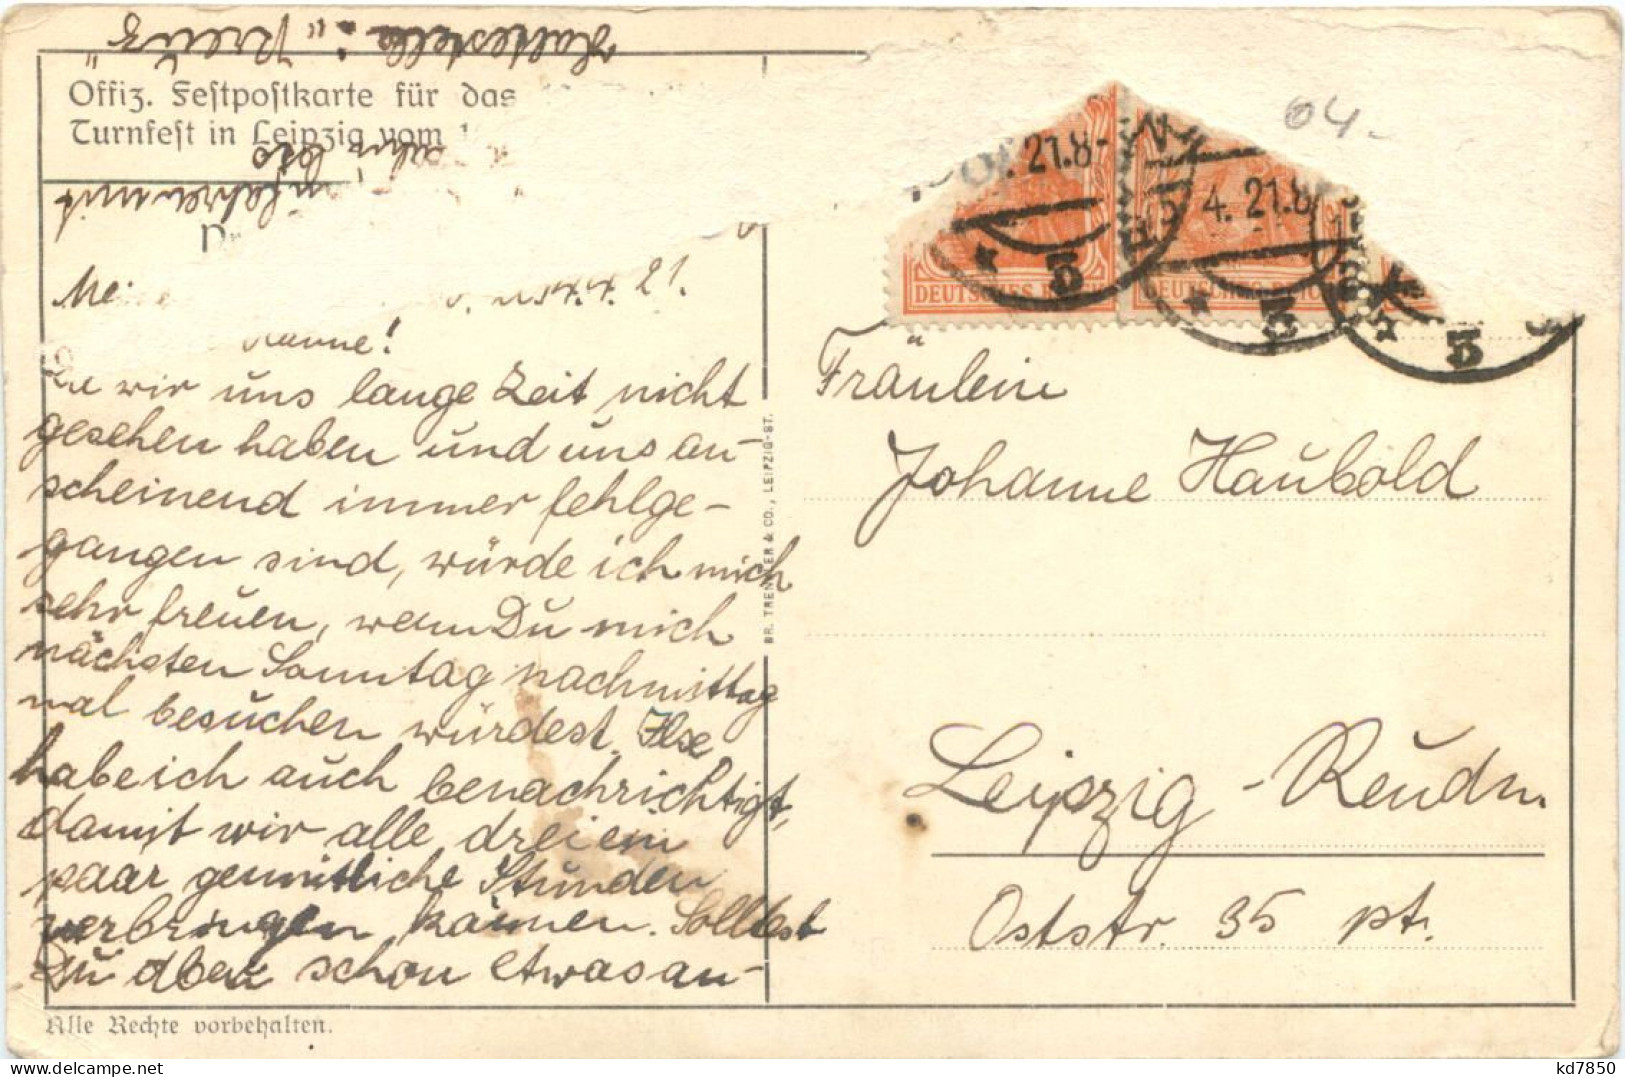 Haltestelle: "Kreuz"
Offiz. Festpostkarte für das
Turnfest in Leipzig vom
fahren mit
bis
21.
Da wir uns lange Zeit nicht
gesehen haben und uns an-
scheinend immer fehlge-
gangen sind, würde ich mich
sehr freuen, wenn Du mich
nächsten Sonntag nachmittag
mal besuchen würdest. Ilse
habe ich auch benachrichtigt,
damit wir alle drei ein
paar gemütliche Stunden
verbringen können. Solltest
Du aber schon etwas an-
Alle Rechte vorbehalten.
BR. TRENKLER & CO., LEIPZIG-ST.
04-
21.8-
4.21.8
DEUTSCHES REICH
DEUTSCHES REICH
5
5
5
Fräulein
Johanne Haubold
Leipzig-Reudn.
Oststr. 35 pt.
kd7850